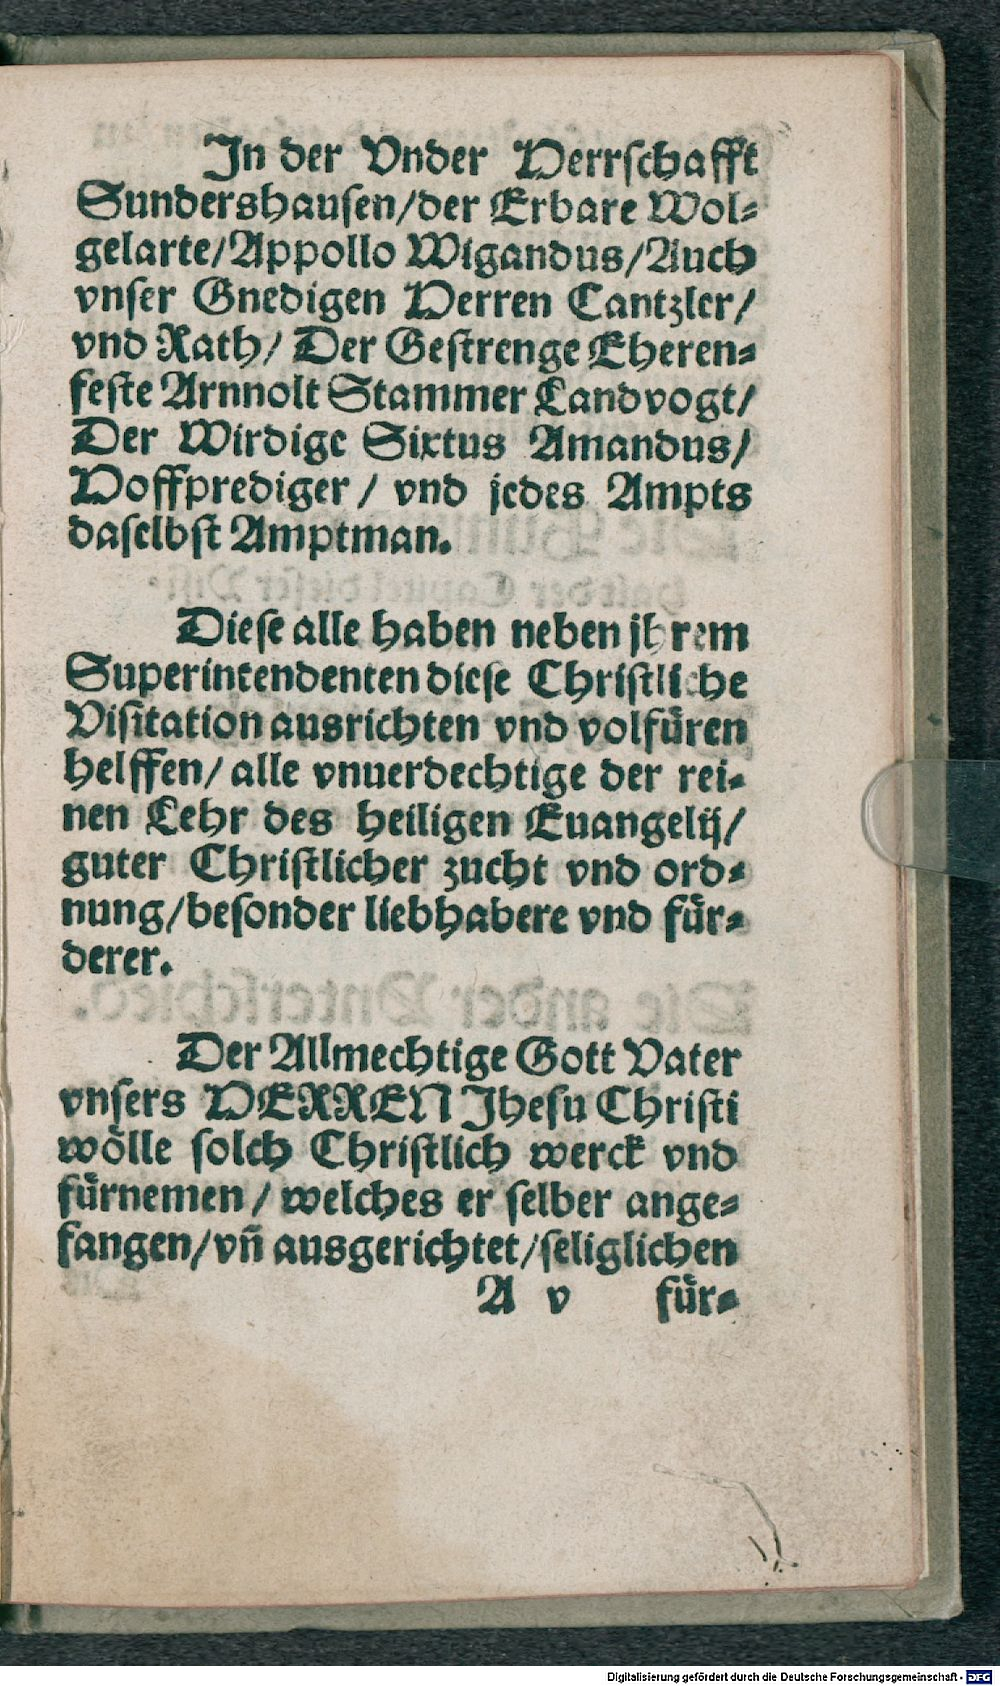 In der Vnder Herrschafft
Sundershausen/der Erbare Wol-
gelarte/Appollo Wigandus/Auch
vnser Gnedigen Herren Cantzler/
vnd Rath/ Der Gestrenge Eheren-
feste Arnnolt Stammer Landvogt/
Der Wirdige Sixtus Amandus/
Hoffprediger / vnd jedes Ampts
daselbst Amptman.
Diese alle haben neben jhrem
Superintendenten diese Christliche
Visitation ausrichten vnd volfüren
helffen/ alle vnuerdechtige der rei-
nen Lehr des heiligen Euangelij/
guter Christlicher zucht vnd ord-
nung/besonder liebhabere vnd für-
derer.
Der Allmechtige Gott Vater
vnsers HERREN Jhesu Christi
wölle solch Christlich werck vnd
fürnemen / welches er selber ange-
fangen/vñ ausgerichtet/seliglichen
A v für-
Digitalisierung gefördert durch die Deutsche Forschungsgemeinschaft - DFG